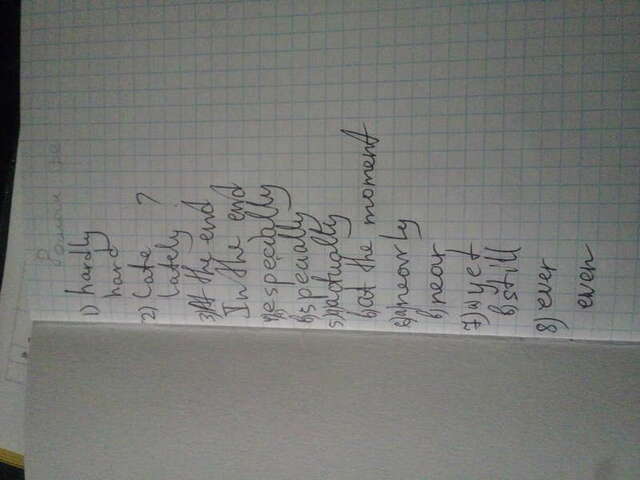 1) hardly
hard
2) late ?
lately
3) At the end
In the end
4) a) especially
b) specially
5) a) actually
b) at the moment
6) a) nearly
b) near
7) a) yet
b) still
8) ever
even